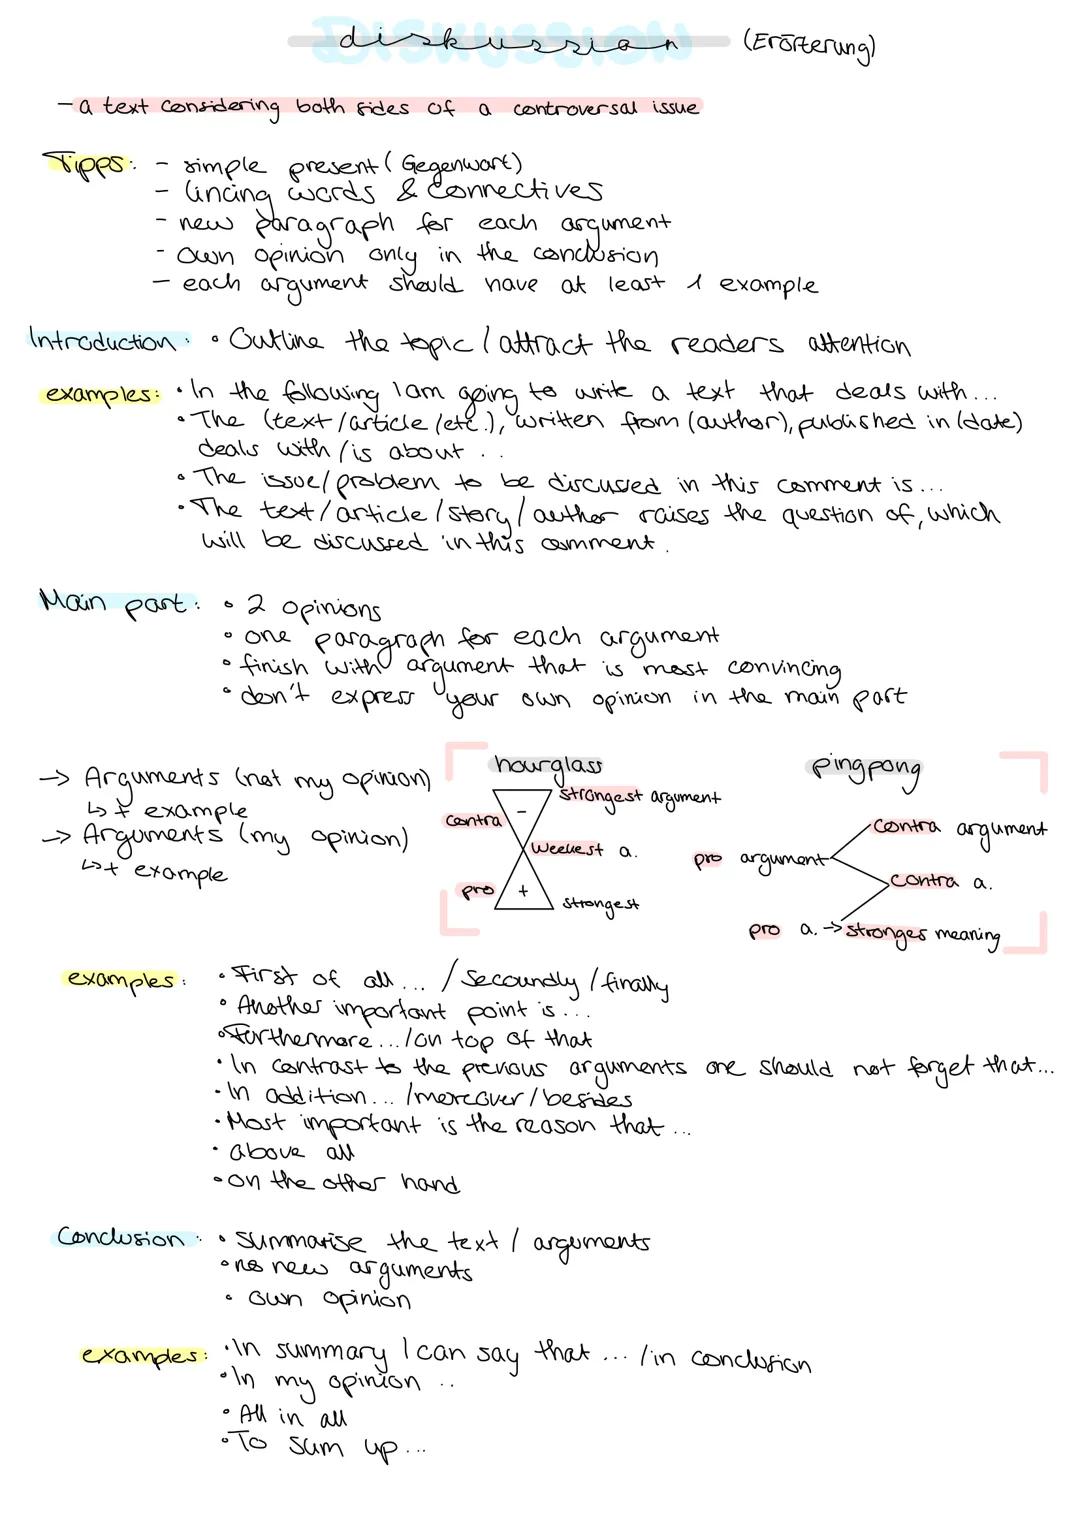 diskussion (Erörterung)
DISKUSSION
- a text considering both sides of a controversal issue
Tipps: - simple present (Gegenwart)
- lincing words & connectives
- new paragraph for each argument
- own opinion only in the conclusion
- each argument should have at least 1 example
Introduction: • Outline the topic / attract the readers attention
examples: • In the following I am going to write a text that deals with...
• The (text/article/etc.), written from (author), published in (date)
deals with / is about ..
• The issue/problem to be discussed in this comment is...
• The text/article/story/author raises the question of, which
will be discussed in this comment.
Main part: • 2 opinions
• one paragraph for each argument
• finish with argument that is most convincing
• don't express your own opinion in the main part
→ Arguments (not my opinion)
↳ + example
→ Arguments (my opinion)
↳ + example
hourglass
strongest argument
contra -
weekest a.
pro +
strongest
pingpong
contra argument
pro argument
contra a.
pro a. → stronges meaning
examples: • First of all ... / Secoundly / finally
• Another important point is ...
• Furthermore ... / on top of that
• In contrast to the previous arguments one should not forget that...
• In addition... /moreover/besides
• Most important is the reason that ...
• above all
• on the other hand
Conclusion: • summarise the text / arguments
• no new arguments
• own opinion
examples: • In summary I can say that ... / in conclusion
• In my opinion ..
• All in all
• To sum up ...